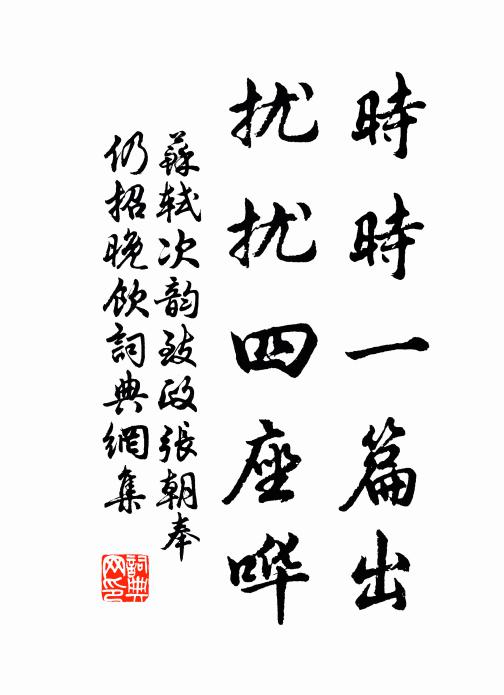 時時一篇出
扰扰四座哗
蘇轼次韵致政張朝奉
仍招晚飲詞典網集
詞典
网印